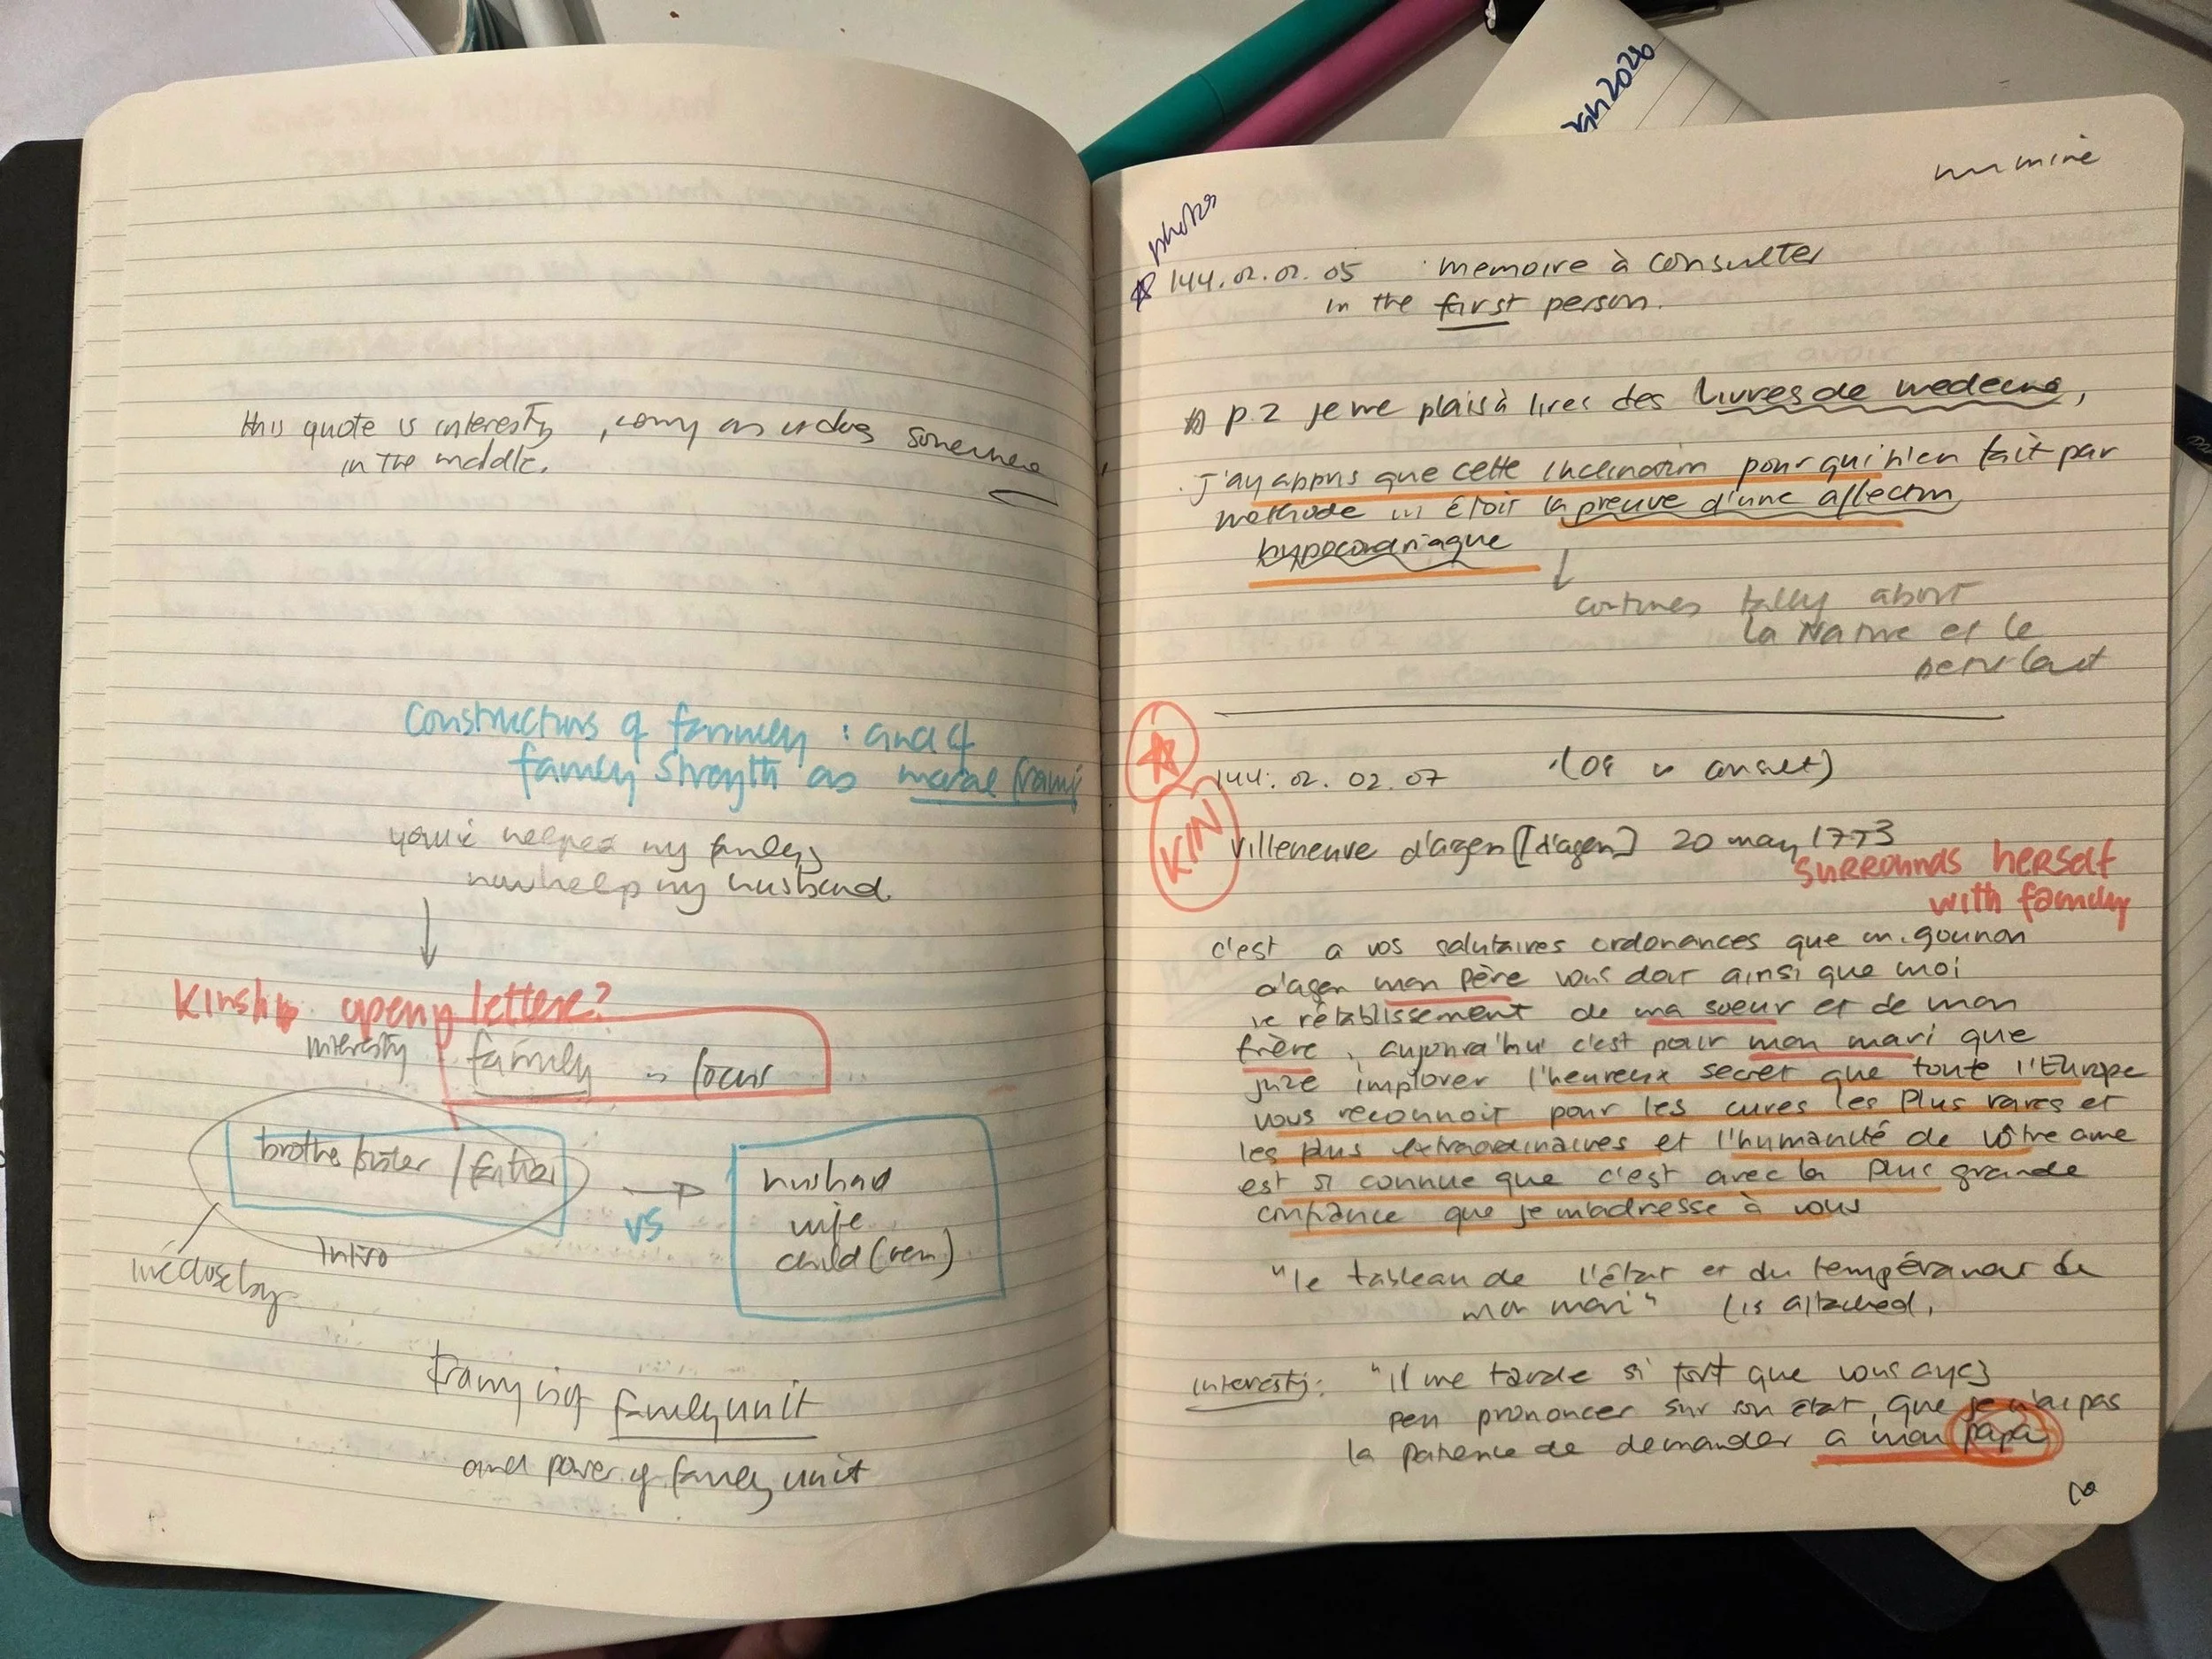 this quote is interesty, comy as it does somewhere
in the middle.
constructions of family : and of
family strength as moral framg
you've helped my family
now help my husband.
Kinship openy letters?
interesty family is focus
brother/sister / father
vs
husband
wife
child (ren)
intro
framing of family unit
and power of family unit
photos
144.02.02.05 memoire à consulter
in the first person.
p.2 je me plais à lires des livres de medecine,
j'ay appris que cette inclination pour qui n'en fait par
methode ... étoit la preuve d'une affection
hypocondriaque
continues talky about
la Nature et le
144.02.02.07 (08 is consult)
KIN
Villeneuve d'agen [d'agen] 20 may 1773
SURROUNDS herself
with family
c'est a vos salutaires ordonances que m. gounon
d'agen mon père vous doit ainsi que moi
le rétablissement de ma soeur et de mon
frère, aujourd'hui c'est pour mon mari que
j'ose implorer l'heureux secret que toute l'Europe
vous reconnoit pour les cures les plus rares et
les plus extraordinaires et l'humanité de vôtre ame
est si connue que c'est avec la plus grande
confiance que je m'adresse à vous
"le tableau de l'état et du tempéramment de
mon mari" (is attached,
interesty: "il me tarde si fort que vous ayez
peu prononcer sur son état, que je n'ai pas
la patience de demander a mon papa